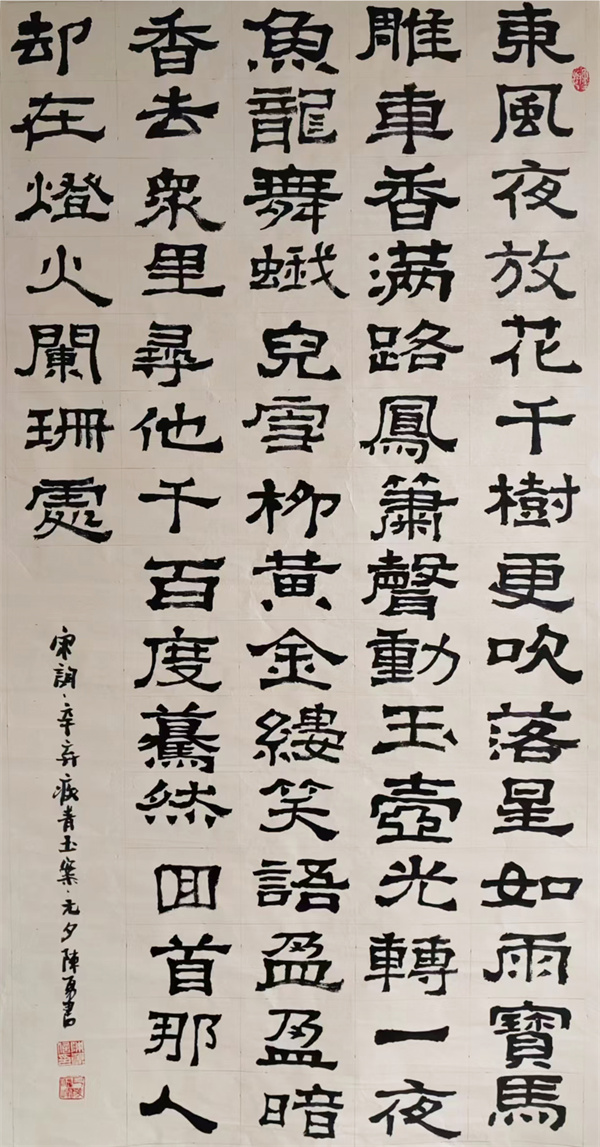 東風夜放花千樹更吹落星如雨寶馬
雕車香满路鳳簫聲動玉壺光轉一夜
魚龍舞蛾兒雪柳黄金縷笑語盈盈暗
香去衆里尋他千百度驀然回首那人
却在燈火闌珊處
宋詞·辛弃疾青玉案·元夕陳勇書